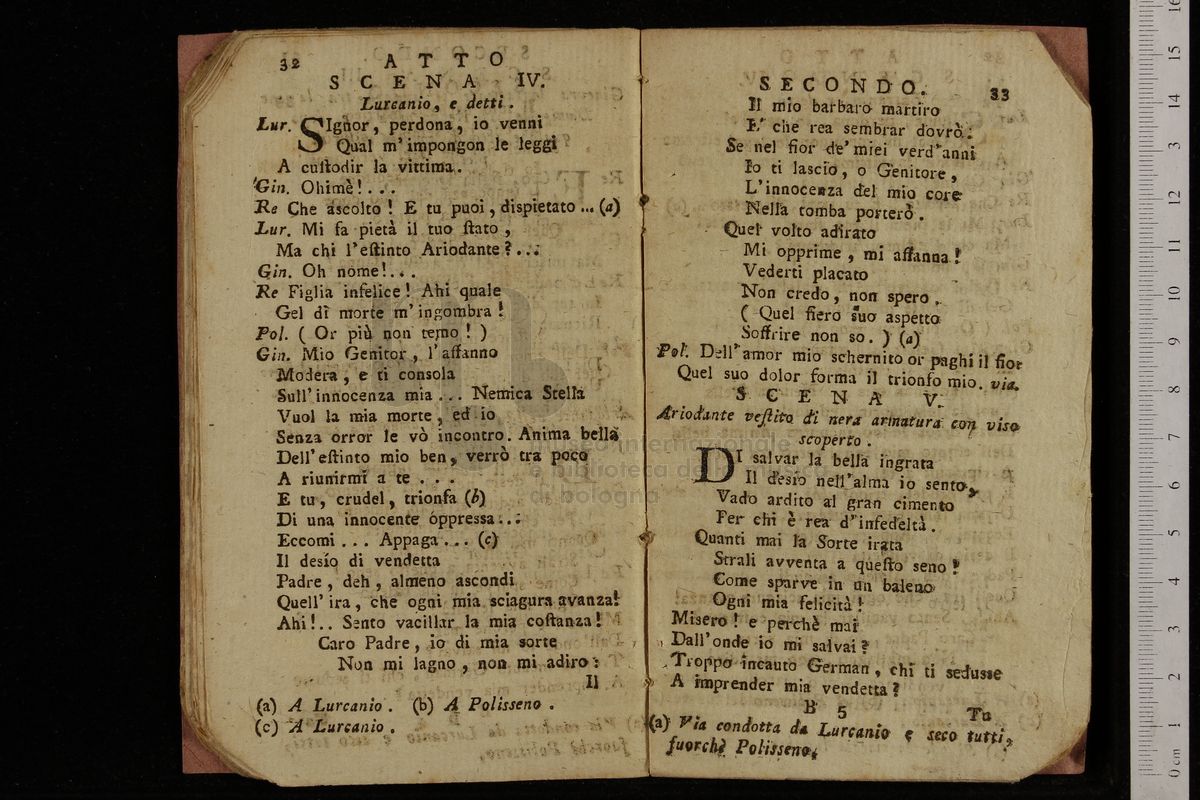 32 ATTO
SCENA IV.
Lurcanio, e detti.
Lur. SIgnor, perdona, io venni
Qual m'impongon le leggi
A cuſtodir la vittima.
Gin. Ohimè!...
Re Che aſcolto! E tu puoi, diſpietato... (a)
Lur. Mi fa pietà il tuo ſtato,
Ma chi l'eſtinto Ariodante?...
Gin. Oh nome!...
Re Figlia infelice! Ahi quale
Gel di morte m'ingombra!
Pol. ( Or più non temo! )
Gin. Mio Genitor, l'affanno
Modera, e ti conſola
Sull'innocenza mia... Nemica Stella
Vuol la mia morte, ed io
Senza orror le vò incontro. Anima bella
Dell'eſtinto mio ben, verrò tra poco
A riunirmi a te...
E tu, crudel, trionfa (b)
Di una innocente óppressa...
Eccomi... Appaga... (c)
Il desío di vendetta
Padre, deh, almeno ascondi
Quell'ira, che ogni mia sciagura avanza!
Ahi!.. Sento vacillar la mia coſtanza!
Caro Padre, io di mia sorte
Non mi lagno, non mi adiro:
Il
(a) A Lurcanio. (b) A Polisseno.
(c) A Lurcanio.
SECONDO. 33
Il mio barbaro martiro
E' che rea sembrar dovrò:
Se nel fior de' miei verd'anni
Io ti lascio, o Genitore,
L'innocenza del mio core
Nella tomba porterò.
Quel volto adirato
Mi opprime, mi affanna!
Vederti placato
Non credo, non spero.
( Quel fiero suo aspetto
Soffrire non so. ) (a)
Pol. Dell'amor mio schernito or paghi il fio:
Quel suo dolor forma il trionfo mio. via.
SCENA V.
Ariodante veſtito di nera armatura con viso
scoperto.
DI salvar la bella ingrata
Il desio nell'alma io sento,
Vado ardito al gran cimento
Per chi è rea d'infedeltà.
Quanti mai la Sorte irata
Strali avventa a queſto seno!
Come sparve in un baleno
Ogni mia felicità!
Misero! e perchè mai
Dall'onde io mi salvai?
Troppo incauto German, chi ti sedusse
A imprender mia vendetta?
B 5 Tu
(a) Via condotta da Lurcanio e seco tutti,
fuorchè Polisseno.